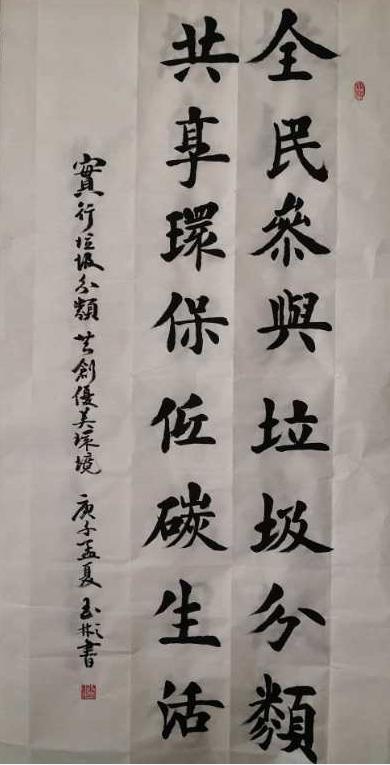 全民參與垃圾分類
共享環保低碳生活
實行垃圾分類 共創優美環境 庚子孟夏 玉彬書